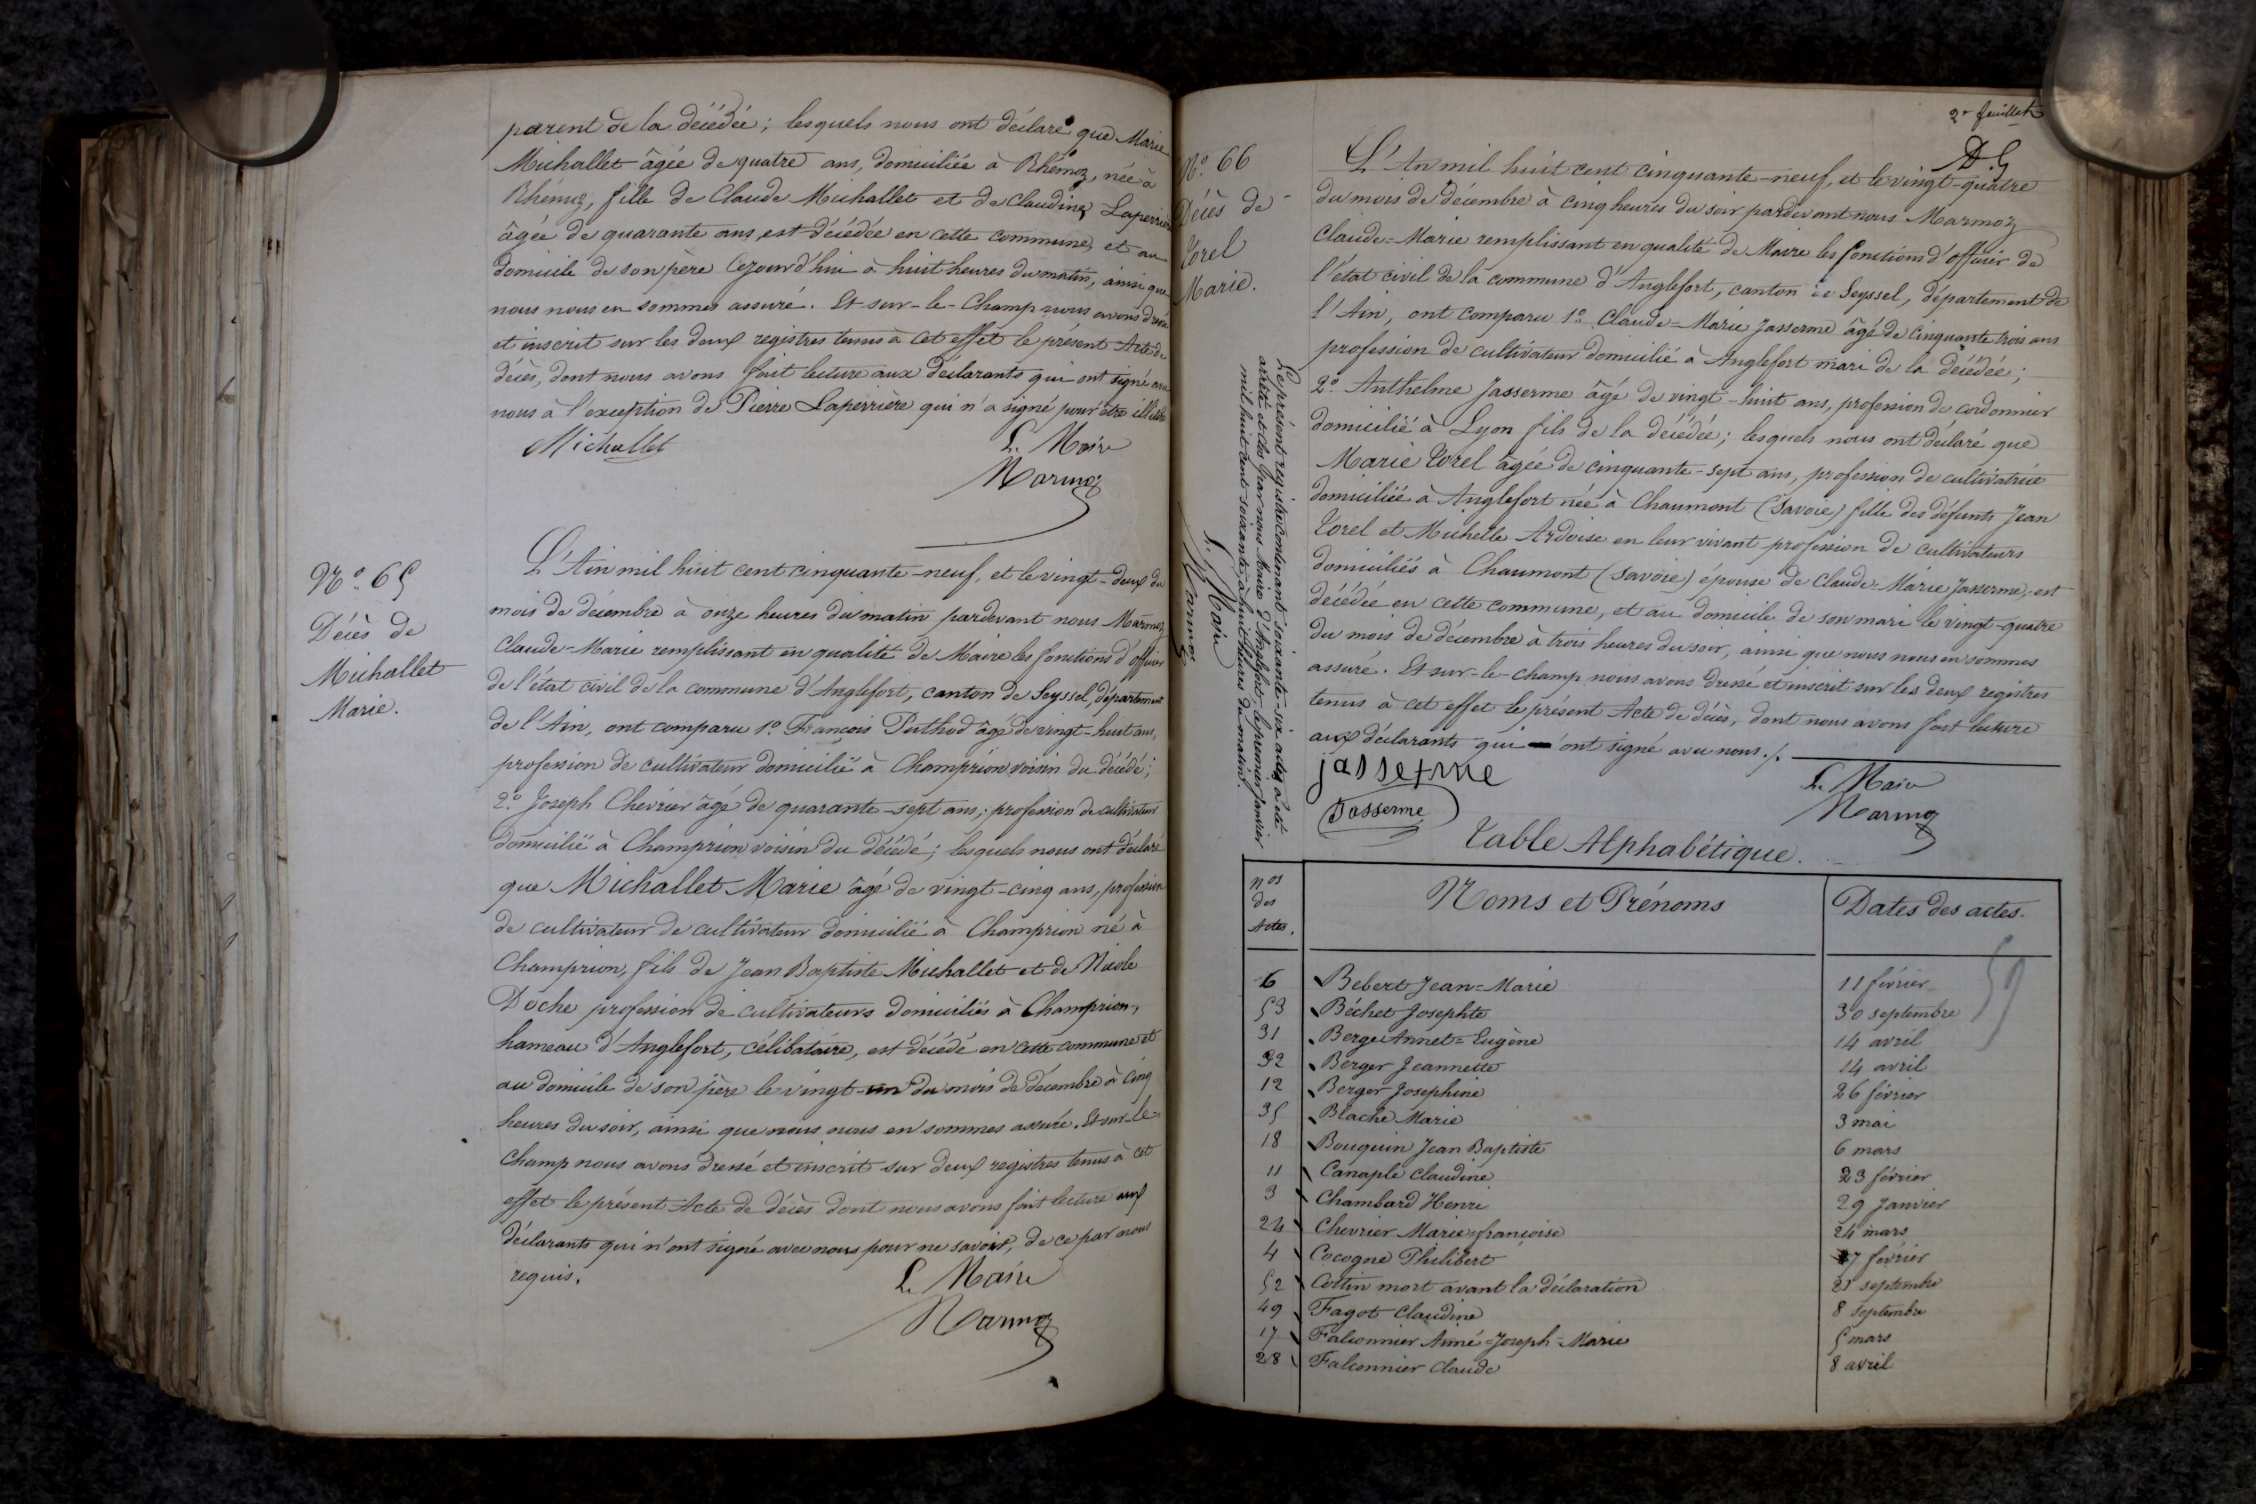 parent de la décédée; lesquels nous ont déclaré que Marie
Michallet âgée de quatre ans, domiciliée à Rhémoz, née à
Rhémoz, fille de Claude Michallet et de Claudine Laperrière
âgée de quarante ans, est décédée en cette commune, et au
domicile de son père cejourd'hui à huit heures du matin, ainsi que
nous nous en sommes assuré. Et sur-le-Champ nous avons dressé
et inscrit sur les deux registres tenus à cet effet le présent Acte de
décès, dont nous avons fait lecture aux déclarants qui ont signé avec
nous à l'exception de Pierre Laperrière qui n'a signé pour être illettré
Michallet
L. Maire
Marmoz
N.º 65
Décès de
Michallet
Marie.
L'Ain mil huit cent cinquante-neuf, et le vingt-deux du
mois de décembre à onze heures du matin pardevant nous Marmoz
Claude-Marie remplissant en qualité de Maire les fonctions d'officier
de l'état civil de la commune d'Anglefort, canton de Seyssel, département
de l'Ain, ont comparu 1.º François Puthod âgé de vingt-huit ans,
profession de cultivateur domicilié à Champrion voisin du décédé;
2.º Joseph Chevrier âgé de quarante-sept ans; profession de cultivateur
domicilié à Champrion voisin du décédé; lesquels nous ont déclaré
que Michallet Marie âgé de vingt-cinq ans, profession
de cultivateur de cultivateur domicilié à Champrion né à
Champrion, fils de Jean Baptiste Michallet et de Nicole
Doche profession de cultivateurs domiciliés à Champrion,
hameau d'Anglefort, célibataire, est décédé en cette commune et
au domicile de son père le vingt-un du mois de décembre à cinq
heures du soir, ainsi que nous nous en sommes assuré. Et sur-le-
Champ nous avons dressé et inscrit sur deux registres tenus à cet
effet le présent Acte de décès dont nous avons fait lecture aux
déclarants qui n'ont signé avec nous pour ne savoir, de ce par nous
requis.
L. Maire
Marmoz
2e feuillet
N.º 66
Décès de
Torel
Marie.
L'An mil huit cent cinquante-neuf, et le vingt-quatre
du mois de décembre à cinq heures du soir pardevant nous Marmoz
Claude-Marie remplissant en qualité de Maire les fonctions d'officier de
l'état civil de la commune d'Anglefort, canton de Seyssel, département de
l'Ain, ont comparu 1.º Claude-Marie Jasserme âgé de cinquante trois ans
profession de cultivateur domicilié à Anglefort mari de la décédée;
2.º Anthelme Jasserme âgé de vingt-huit ans, profession de cordonnier
domicilié à Lyon fils de la décédée; lesquels nous ont déclaré que
Marie Torel âgée de cinquante-sept ans, profession de cultivatrice
domiciliée à Anglefort née à Chaumont (Savoie) fille des défunts Jean
Torel et Michelle Ardoise en leur vivant profession de cultivateurs
domiciliés à Chaumont (Savoie) épouse de Claude-Marie Jasserme, est
décédée en cette commune, et au domicile de son mari le vingt-quatre
du mois de décembre à trois heures du soir, ainsi que nous nous en sommes
assuré. Et sur-le-champ nous avons dressé et inscrit sur les deux registres
tenus à cet effet le présent Acte de décès, dont nous avons fait lecture
aux déclarants qui ont signé avec nous ./.
jasserme
Jasserme
L. Maire
Marmoz
Le présent registre contenant soixante-six actes a été
arrêté et clos par nous Maire d'Anglefort, le premier janvier
mil huit cent soixante, à huit heures du matin.
L. Maire
Marmoz
Table Alphabétique.
Nos des Actes. Noms et Prénoms Dates des actes.
6 Bebert Jean-Marie 11 février
53 Béchet Josephte 30 septembre
31 Berger Annet-Eugène 14 avril
32 Berger Jeannette 14 avril
12 Berger Josephine 26 février
35 Blache Marie 3 mai
18 Bouquin Jean Baptiste 6 mars
11 Canaple Claudine 23 février
3 Chambard Henri 29 Janvier
24 Chevrier Marie-françoise 24 mars
4 Cocogne Philibert 7 février
52 Cottin mort avant la déclaration 21 septembre
49 Fagot Claudine 8 septembre
17 Falconnier Aimé-Joseph-Marie 5 mars
28 Falconnier Claude 8 avril
59